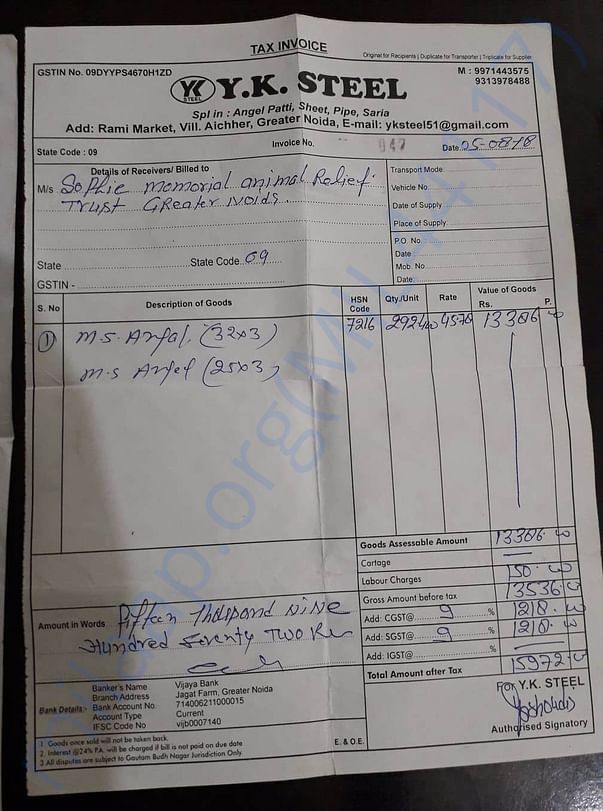 TAX INVOICE
Original for Recipients | Duplicate for Transporter | Triplicate for Supplier
GSTIN No. 09DYYPS4670H1ZD
M : 9971443575
9313978488
YK STEEL
Y.K. STEEL
Spl in : Angel Patti, Sheet, Pipe, Saria
Add: Rami Market, Vill. Aichher, Greater Noida, E-mail: yksteel51@gmail.com
State Code : 09
Invoice No. 047
Date 05-08-18
Details of Receivers/ Billed to
M/s Sophie memorial animal Relief
Trust Greater Noida
State
State Code 09
GSTIN -
Transport Mode
Vehicle No
Date of Supply
Place of Supply
P.O No
Date
Mob. No
Date:
S. No Description of Goods HSN Code Qty./Unit Rate Value of Goods Rs. P.
1 M.S. Angal (32x3) 7216 292 4578 13386 00
M.S Angel (25x3)
Goods Assessable Amount 13386.00
Cartage —
Labour Charges 150.00
Gross Amount before tax 13536.00
Add: CGST@ 9 % 1218.00
Add: SGST@ 9 % 1218.00
Add: IGST@ %
Total Amount after Tax 15972.00
Amount in Words Fifteen Thousand Nine
Hundred Seventy Two Rs
Bank Details:-
Banker's Name Vijaya Bank
Branch Address Jagat Farm, Greater Noida
Bank Account No. 714006211000015
Account Type Current
IFSC Code No vijb0007140
For Y.K. STEEL
Authorised Signatory
1. Goods once sold will not be taken back.
2. Interest @24% P.A. will be charged if bill is not paid on due date
3 All disputes are subject to Gautam Budh Nagar Jurisdiction Only.
E. & O.E.